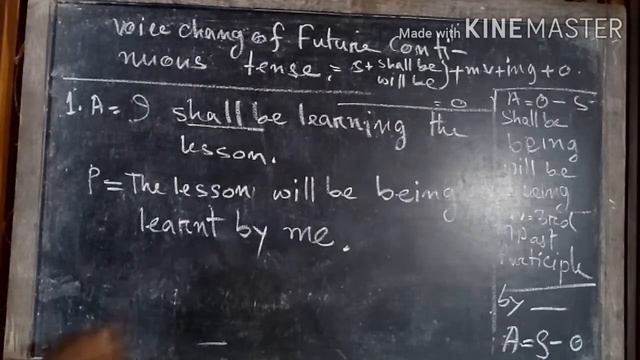 Made with KINEMASTER
voice chang of Future Conti-
nuous tense = S + shall be
will be) + mv + ing + o.
1. A = I shall be learning the
= 0
lesson.
P = The lesson will be being
learnt by me.
A = O - S
shall be
being
will be
being
3rd
Past
Participle
by —
A = S - O